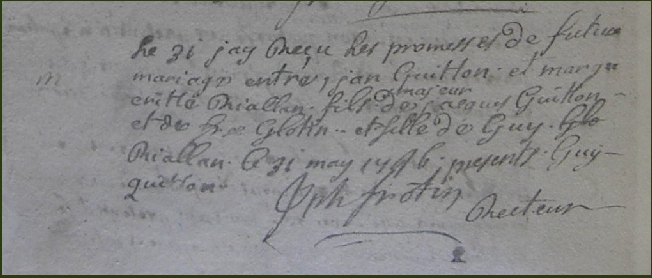 m
Le 31 jay Reçu Les promesses de future
mariage entre, jan Guitton. et margu
eritte Riallan. fils majeur de jacques Guitton
et de Glotin -- et fille de Guy.
Riallan. Le 31 may presents. Guy
guitton
Jph frotin Recteur